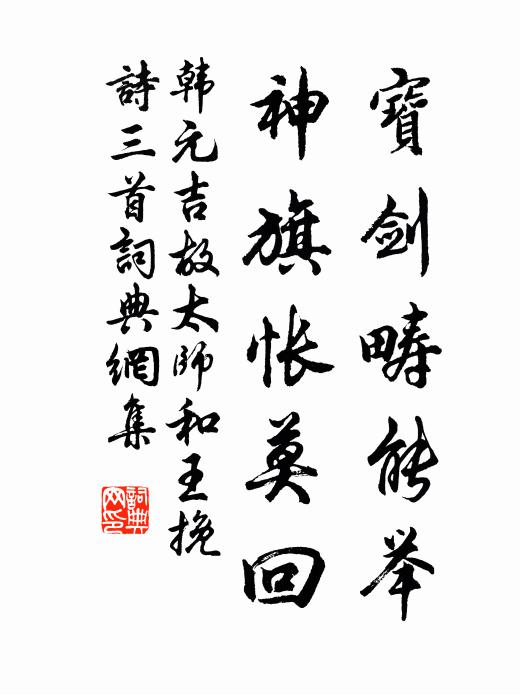 寶劍疇能举
神旗怅莫回
韩元吉故太师和王挽
詩三首詞典網集
詞典
网印